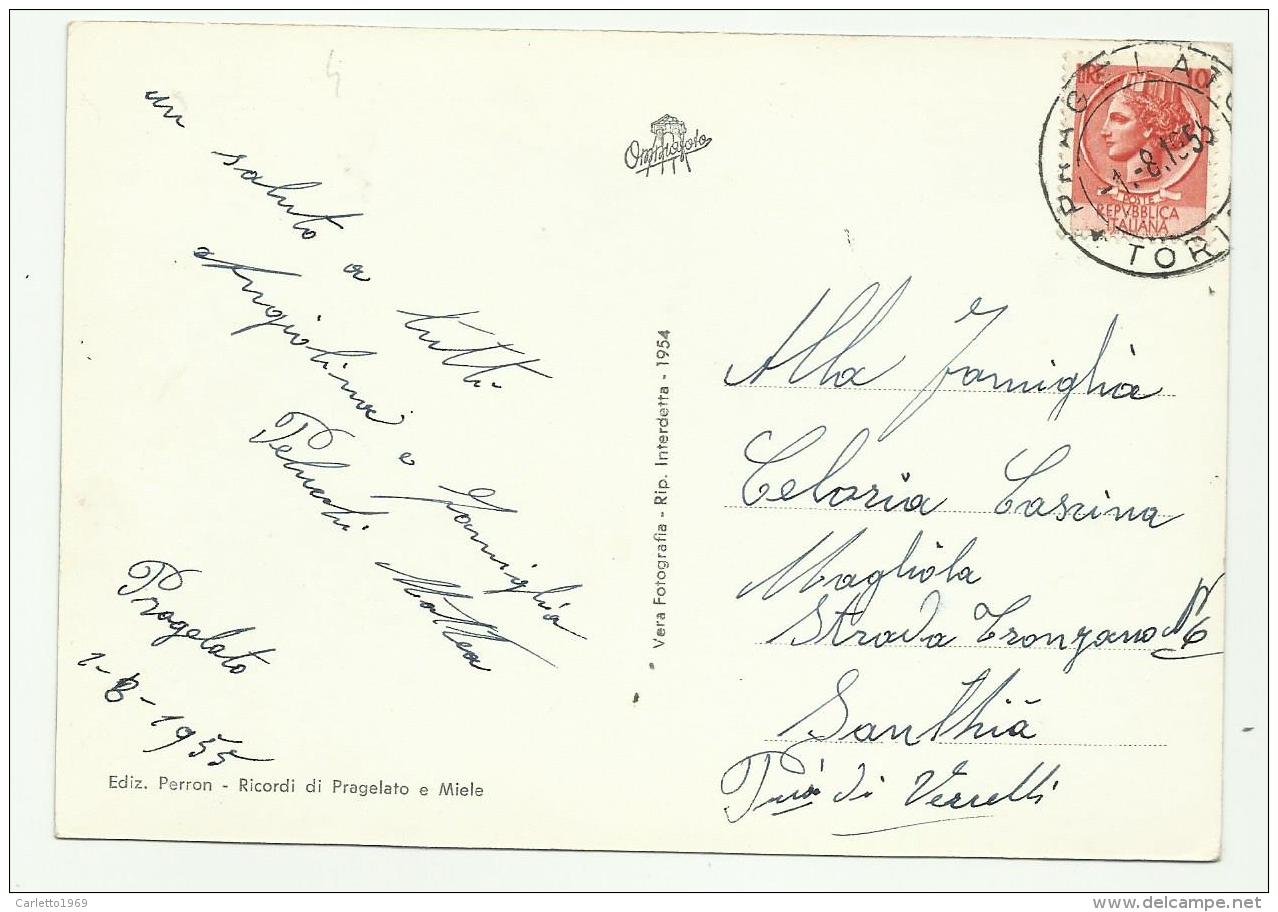 un saluto a tutti
Angiolina e Famiglia
Mattea
Pragelato
1-8-1955
Ediz. Perron - Ricordi di Pragelato e Miele
Vera Fotografia - Rip. Interdetta - 1954
LIRE 10
POSTE
REPVBBLICA
ITALIANA
PRAGELATO
TORI
-1.-8.1955
Alla Famiglia
Celoria Cascina
Magliola
Strada Tronzano N 6
Santhià
di Vercelli
Carletto1969
delcampe.net